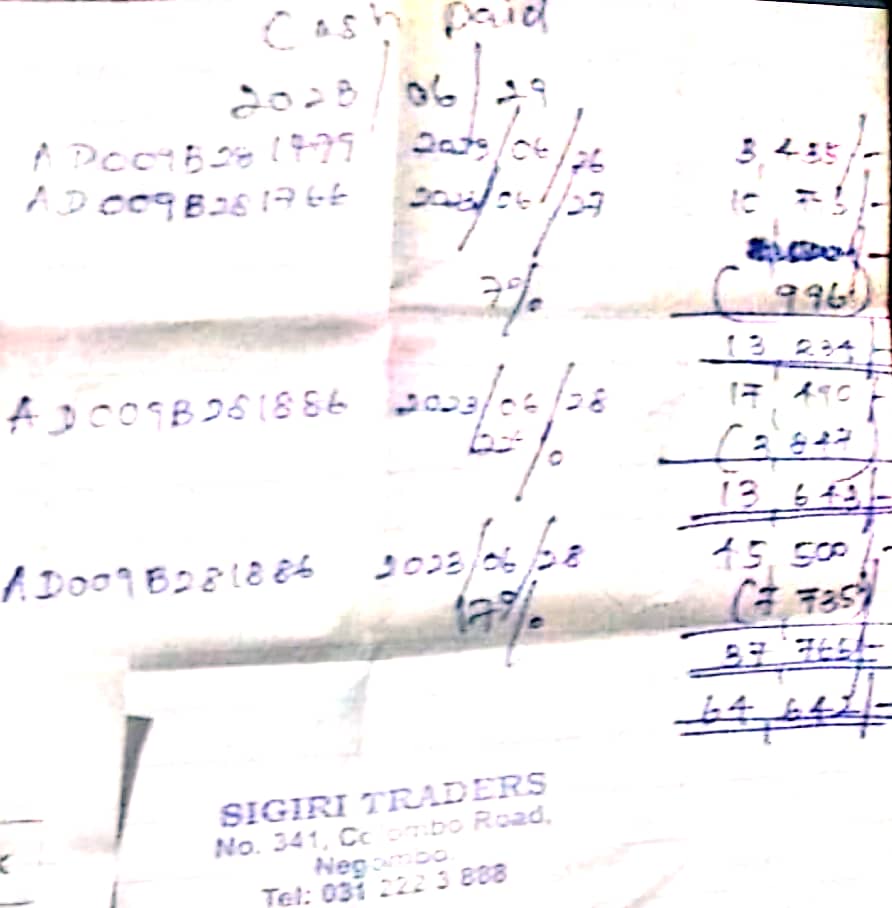 Cash paid
2023/06/29
AD009B281779 2023/06/26 3,435/-
AD009B281766 2023/06/27 10,795/-
7% (996)
13,234/-
AD009B281886 2023/06/28 17,490/-
22% (3,847)
13,643/-
AD009B281886 2023/06/28 45,500/-
17% (7,735)
37,765/-
64,642/-
SIGIRI TRADERS
No. 341, Colombo Road,
Negombo.
Tel: 031 222 3 888